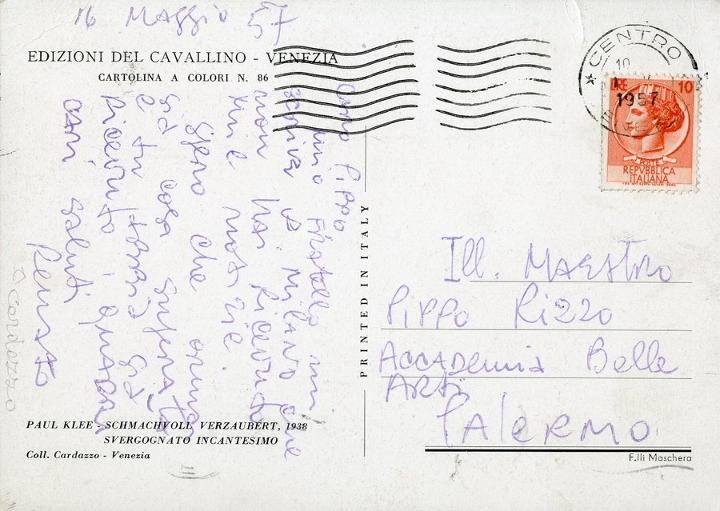 16 Maggio 57
EDIZIONI DEL CAVALLINO - VENEZIA
CARTOLINA A COLORI N. 86
Caro Pippo
mio fratello mi
scriva da Milano che
non hai ricevuto
mie notizie
Spero che ormai
sia cosa superata
e tu abbia già
ricevuto i quadri
Cari saluti
Renato
Cardazzo
PRINTED IN ITALY
CENTRO
1957
LIRE 10
POSTE
REPVBBLICA
ITALIANA
Ill. Maestro
Pippo Rizzo
Accademia Belle
Arti
Palermo
F.lli Maschera
PAUL KLEE - SCHMACHVOLL VERZAUBERT, 1938
SVERGOGNATO INCANTESIMO
Coll. Cardazzo - Venezia